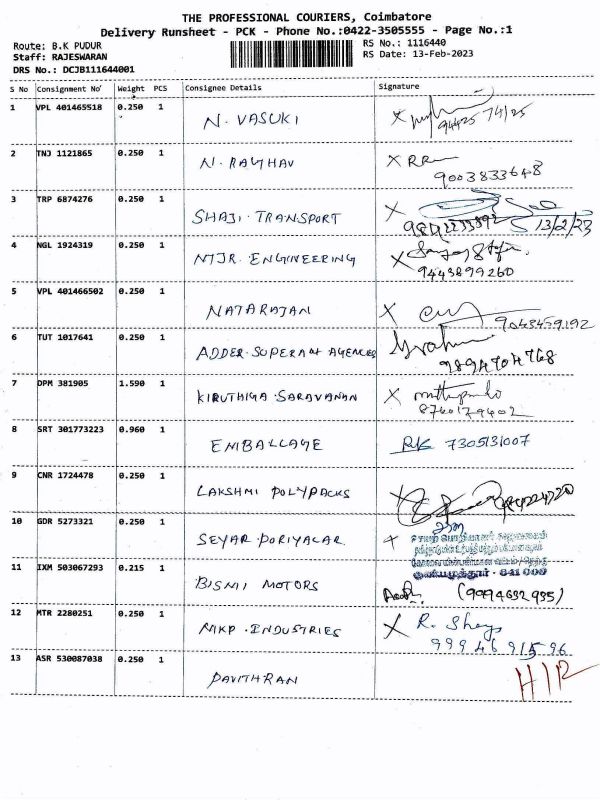 THE PROFESSIONAL COURIERS, Coimbatore
Delivery Runsheet - PCK - Phone No.:0422-3505555 - Page No.:1
Route: B.K PUDUR
RS No.: 1116440
Staff: RAJESWARAN
RS Date: 13-Feb-2023
DRS No.: DCJB111644001
S No Consignment No Weight PCS Consignee Details Signature
1 VPL 401465518 0.250 1 N. VASUKI
94425 74125
2 TNJ 1121865 0.250 1 N. RAGHAV
9003833648
3 TRP 6874276 0.250 1 SHAJI. TRANSPORT
9842233892 13/2/23
4 NGL 1924319 0.250 1 NTJR. ENGINEERING
9443899260
5 VPL 401466502 0.250 1 NATARAJAN
9043459192
6 TUT 1017641 0.250 1 ADDER. SUPERANT AGENCIES
9894704768
7 DPM 381905 1.590 1 KIRUTHIGA SARAVANAN
8760179402
8 SRT 301773223 0.960 1 EMBALLAGE
7305131007
9 CNR 1724478 0.250 1 LAKSHMI POLYPACKS
10 GDR 5273321 0.250 1 SEYAR PORIYALAR
641 008
11 IXM 503067293 0.215 1 BISMI MOTORS
(9094632935)
12 MTR 2280251 0.250 1 NKP. INDUSTRIES
9994691596
13 ASR 530087038 0.250 1 PAVITHRAN